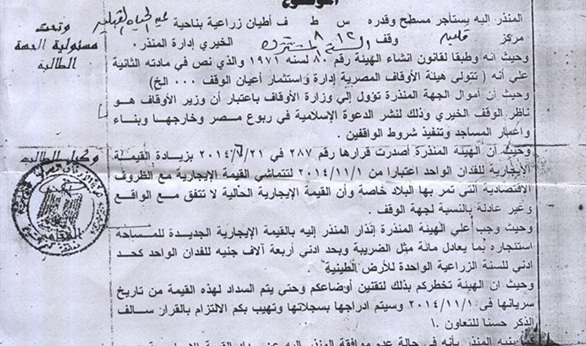 المنذر إليه يستأجر مسطح وقدره س ط ف أطيان زراعية بناحية
مركز وقف الخيري إدارة المنذر.
وتحت
مسئولية الجهة
الطالبة
وحيث انه وطبقا لقانون انشاء الهيئة رقم ٨٠ لسنه ١٩٧١ والذي نص في مادته الثانية
علي أنه ( تتولى هيئة الأوقاف المصرية إدارة وأستثمار أعيان الوقف ٠٠٠ الخ )
وحيث إن أموال الجهة المنذرة تؤول إلي وزارة الأوقاف باعتبار أن وزير الأوقاف هو
ناظر الوقف الخيري وذلك لنشر الدعوة الإسلامية في ربوع مصر وخارجها وبناء
وإعمار المساجد وتنفيذ شروط الواقفين .
وحيث أن الهيئة المنذرة أصدرت قرارها رقم ٢٨٧ في ٢٠١٤/٦/٢١ بزيادة القيمة
وكيل الطالب
الأيجارية للفدان الواحد اعتبارا من ٢٠١٤/١١/١ لتتماشي القيمة الإيجارية مع الظروف
الاقتصادية التي تمر بها البلاد خاصة وأن القيمة الإيجارية الحالية لا تتفق مع الواقع
وغير عادلة بالنسبة لجهة الوقف .
وحيث وجب أعلي الهيئة المنذرة إنذار المنذر إليه بالقيمة الإيجارية الجديدة للمساحة
استنجاره بما يعادل مائة مثل الضريبة وبحد ادني أربعة آلاف جنيه للفدان الواحد كحد
ادني للسنة الزراعية الواحدة للأرض الطينية
وحيث ان الهيئة تخطركم بذلك لتقنين أوضاعكم وحتي يتم السداد لهذه القيمة من تاريخ
سريانها في ٢٠١٤/١١/١ وسيتم ادراجها بسجلاتها وتهيب بكم الالتزام بالقرار سالف
الذكر حسنا للتعاون .
المنذر بأنه في حالة عدم موافقة المنذر اليه